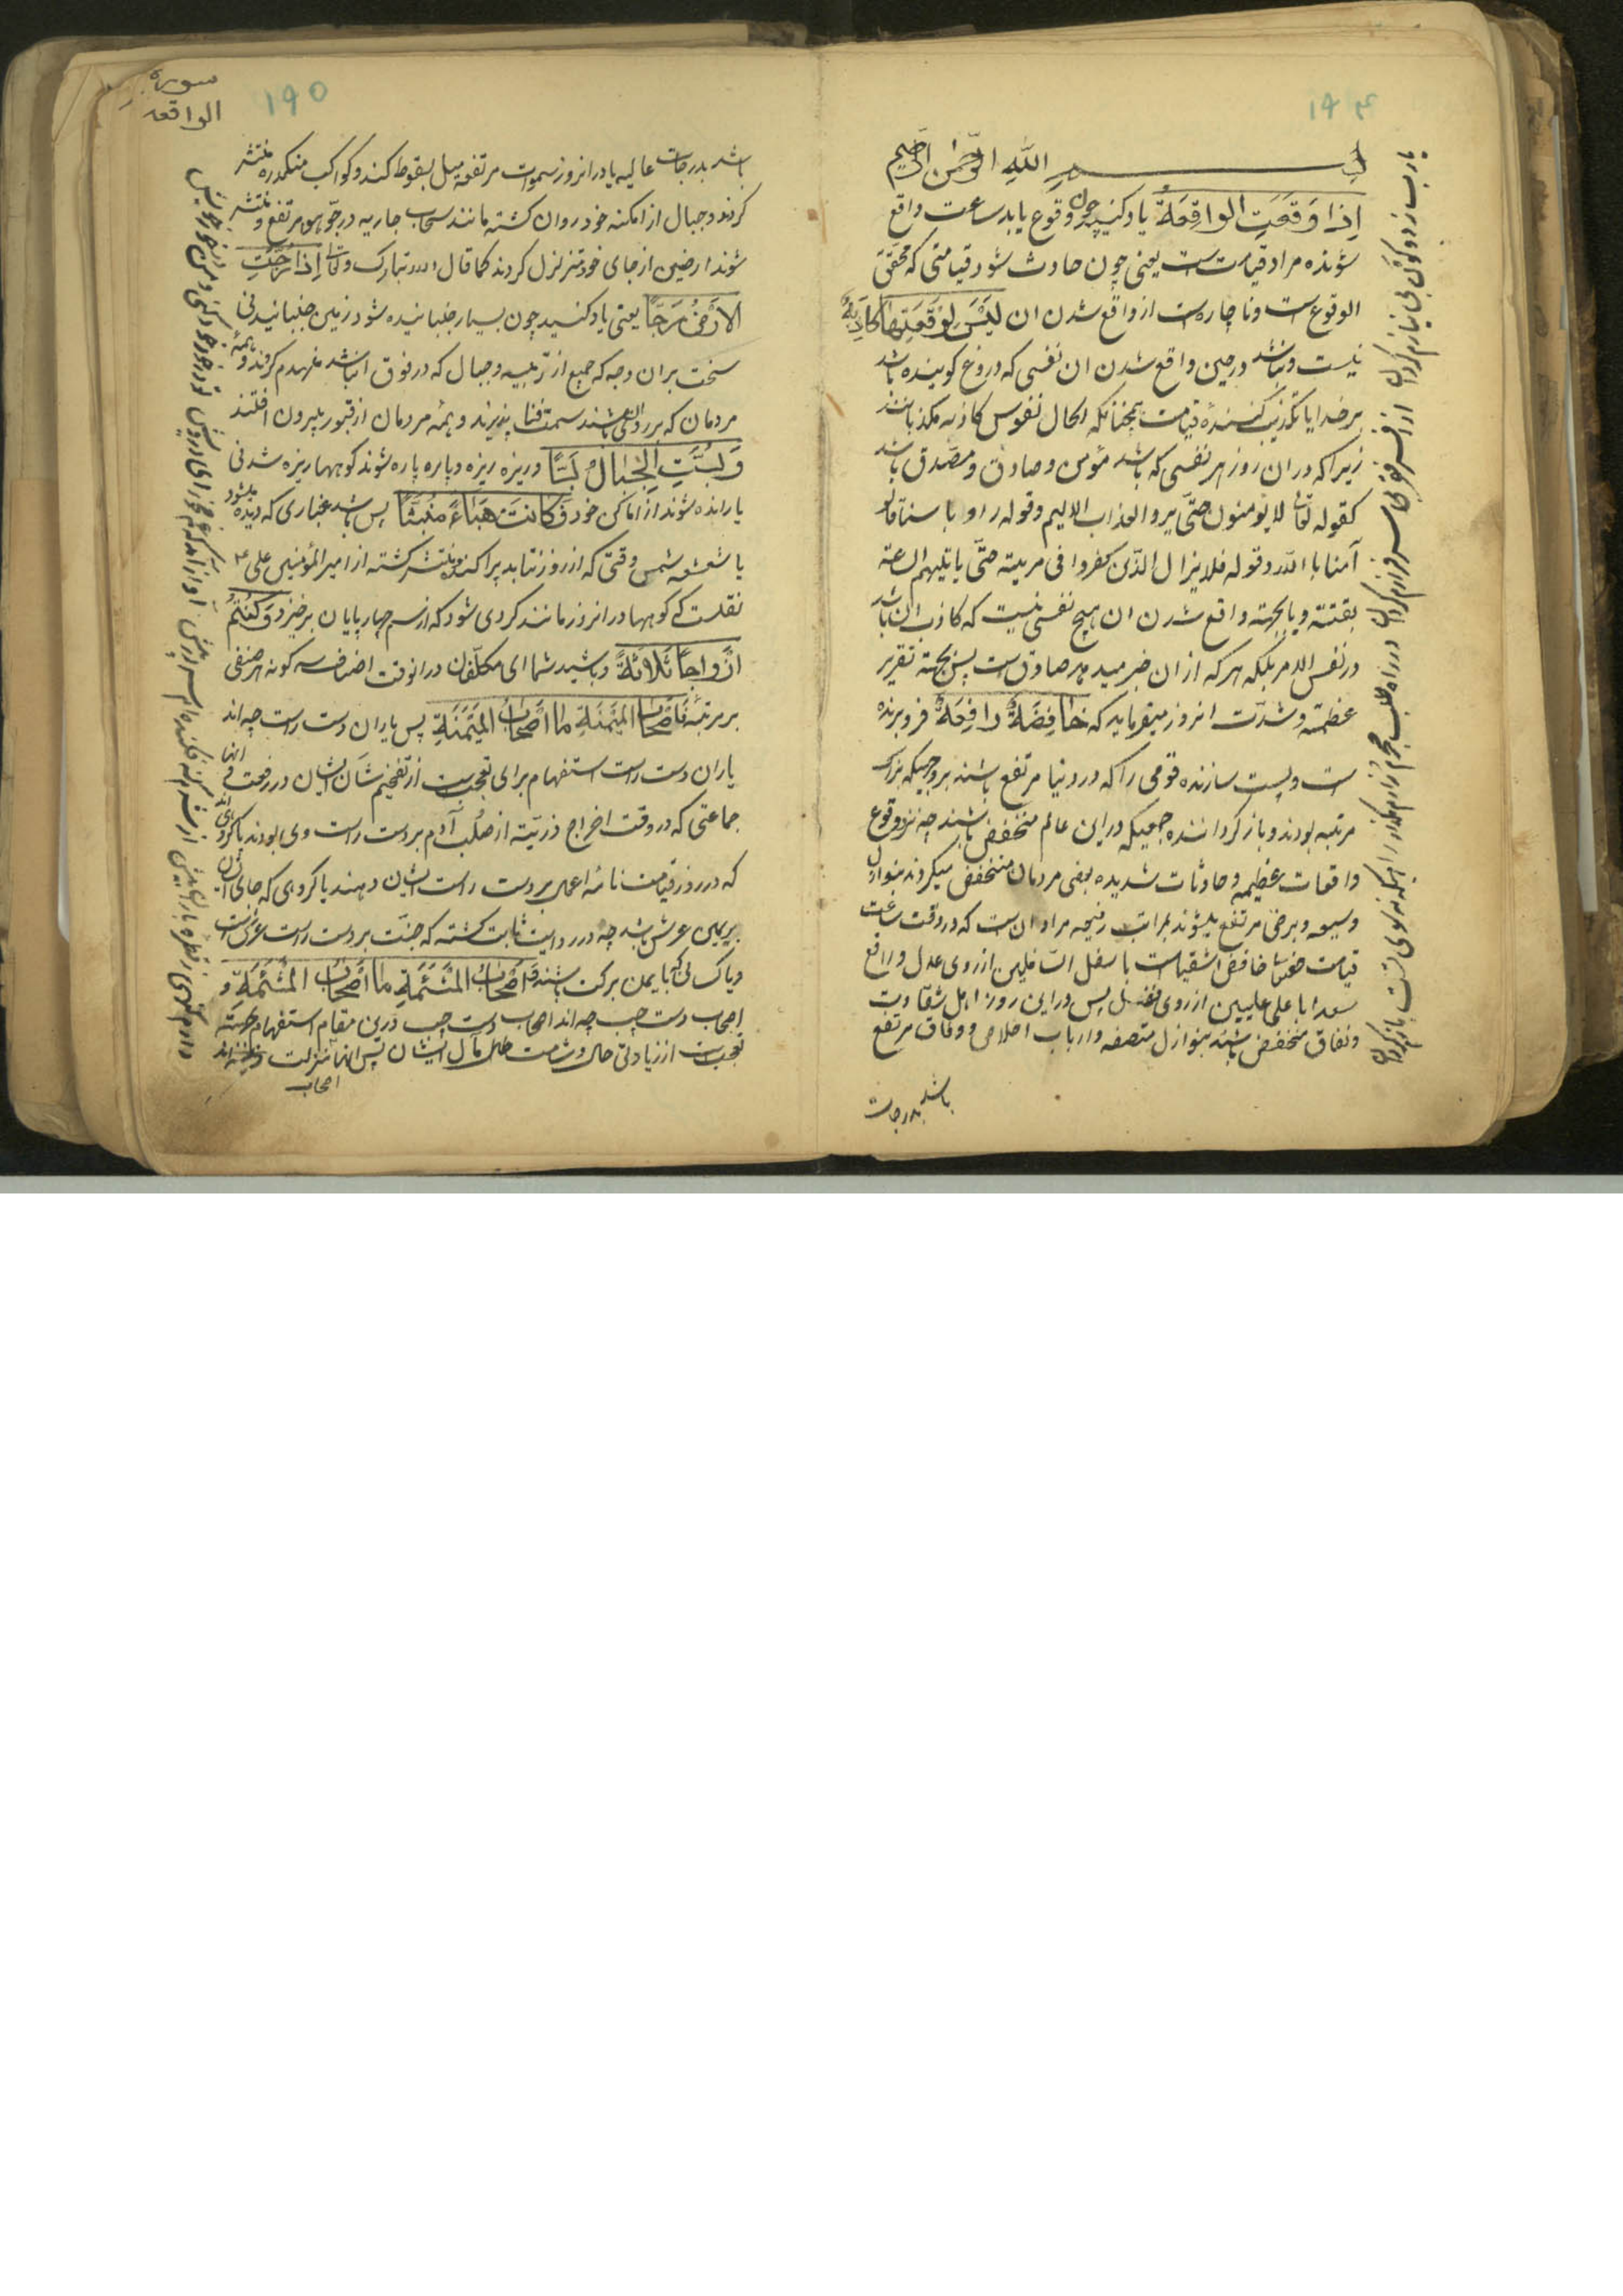 ۱۹۴
بسم الله الرحمن الرحیم
اِذا وَقَعَتِ الواقِعَةُ یاد کنید چون وقوع یابد ساعت واقع
شونده مراد قیامت ست یعنی چون حادث شود قیامتی که محقق
الوقوع ست و ناچارست از واقع شدن ان لَیْسَ لِوَقْعَتِها کاذِبَةٌ
نیست و نباشد در حین واقع شدن ان نفسی که دروغ کوینده باشد
بر خدا یا تکذیب کننده قیامت همچنانکه الحال نفوس کاذبه مکذباتند
زیرا که در ان روز هر نفسی که باشد مؤمن و صادق و مصدق باشد
کقوله تعالی لا یؤمنون حتّی یروا العذاب الالیم و قوله راو باسنا قالوا
آمنا بالله و قوله فلا یزال الذین کفروا فی مریة حتّی یاتیهم الساعة
بغتة و یا بجهة واقع شدن ان هیچ نفسی نیست که کاذب ان باشد
در نفس الامر بلکه هر که از ان خبر میدهد صادق ست پس بجهة تقریر
عظمة و شدّت انروز میفرماید که خافِضَةٌ رافِعَةٌ فرو برنده
ست و پست سازنده قومی را که در دنیا مرتفع باشند بروجهیکه بزرک
مرتبه بودند و باز کرداننده جمعیکه در این عالم منخفض باشند چه نزد وقوع
واقعات عظیمه و حادثات شدیده بعضی مردمان منخفض میکردند بنوازل
وسیعه و برخی مرتفع میشوند بمراتب رفیعه مراد ان ست که در وقت ساعت
قیامت خافض اشقیاست باسفل السّافلین از روی عدل و رافع
سعدا باعلی علیین از روی فضل پس در این روز اهل شقاوت
و نفاق منخفض باشند بنوازل متصفه و ارباب اخلاص و وفاق مرتفع
باشد بدرجات
یارب ز دو کون بی نیازم کردان از افسر فقر سرفرازم کردان در راه طلب محرم رازم کردان زان ره که نه سوی تست بازم کردان
سوره الواقعه
۱۹۵
باشد بدرجات عالیه یا در انروز سموات مرتفعه میل بسقوط کند و کواکب منکدره منتشر
کردند و جبال از امکنه خود روان کشته مانند سحاب جاریه در جوّ هوا مرتفع و منتشر
شوند ارضین از جای خود متزلزل کردند کما قال الله تبارک و تعالی اِذا رُجَّتِ
الاَرْضُ رَجًّا یعنی یاد کنید چون بسیار جنبانیده شود زمین جنبانیدنی
سخت بران وجه که جمیع از ابنیه و جبال که در فوق ان باشد منهدم کردند و همهٔ
مردمان که بر روی ان باشند سمت فنا پذیرند و همه مردمان از قبور بیرون افتند
وَ بُسَّتِ الْجِبالُ بَسًّا و ریزه ریزه و پاره پاره شوند کوهها ریزه شدنی
یا رانده شوند از اماکن خود فَکانَتْ هَباءً مُنْبَثًّا پس باشد غباری که دیده میشود
با شعشعه شمس وقتی که از روزن تابد پراکنده و منتشر کشته از امیر المؤمنین علی ع
نقلست که کوهها در انروز مانند کردی شود که از سم چهارپایان برخیزد وَ کُنْتُمْ
اَزْواجًا ثَلاثَةً و باشید شما ای مکلّفان در انوقت اصناف سه کونه هر صنفی
بر مرتبهٔ فَاَصْحابُ الْمَیْمَنَةِ ما اَصْحابُ الْمَیْمَنَةِ پس یاران دست راست چه اند
یاران دست راست استفهام برای تعجب ست از تفخیم شان ایشان در رفعت انها
جماعتی که در وقت اخراج ذریّة از صلب آدم بر دست راست وی بودند یا کروهی
که در روز قیامت نامهٔ اعمال بر دست راست ایشان دهند یا کروهی که جای ایشان
بر یمین عرش باشد چه در روایت ثابت کشته که جنّت بر دست راست عرش است
و یا کسانی که با یمن و برکت باشند وَ اَصْحابُ الْمَشْئَمَةِ ما اَصْحابُ الْمَشْئَمَةِ و
اصحاب دست چپ چه اند اصحاب دست چپ درین مقام استفهام جهة
تعجب ست از زیادتی حال و شامت مآل ایشان پس انها منزلت
اصحاب